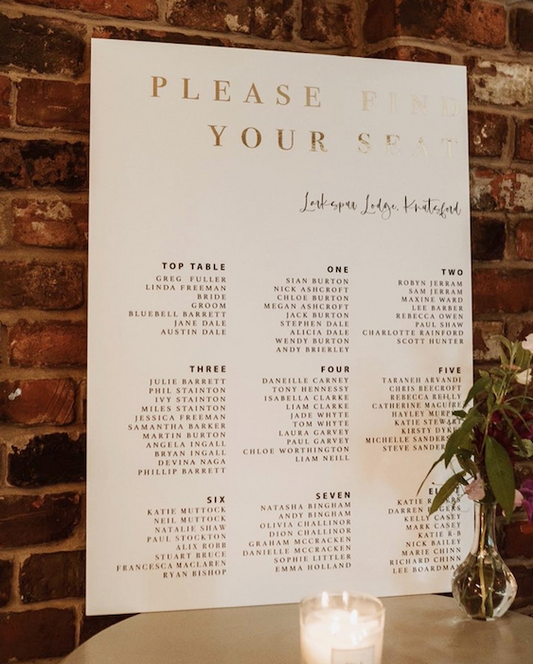 PLEASE FIND
YOUR SEAT
Larkspur Lodge, Knutsford
TOP TABLE
GREG FULLER
LINDA FREEMAN
BRIDE
GROOM
BLUEBELL BARRETT
JANE DALE
AUSTIN DALE
ONE
SIAN BURTON
NICK ASHCROFT
CHLOE BURTON
MEGAN ASHCROFT
JACK BURTON
STEPHEN DALE
ALICIA DALE
WENDY BURTON
ANDY BRIERLEY
TWO
ROBYN JERRAM
SAM JERRAM
MAXINE WARD
LEE BARBER
REBECCA OWEN
PAUL SHAW
CHARLOTTE RAINFORD
SCOTT HUNTER
THREE
JULIE BARRETT
PHIL STAINTON
IVY STAINTON
MILES STAINTON
JESSICA FREEMAN
SAMANTHA BARKER
MARTIN BURTON
ANGELA INGALL
BRYAN INGALL
DEVINA NAGA
PHILLIP BARRETT
FOUR
DANEILLE CARNEY
TONY HENNESSY
ISABELLA CLARKE
LIAM CLARKE
JADE WHYTE
TOM WHYTE
LAURA GARVEY
PAUL GARVEY
CHLOE WORTHINGTON
LIAM NEILL
FIVE
TARANEH ARVANDI
CHRIS BEECROFT
REBECCA REILLY
CATHERINE MAGUIRE
HAYLEY
KATIE
KIRSTY
MICHELLE
STEVE
SIX
KATIE MUTTOCK
NEIL MUTTOCK
NATALIE SHAW
PAUL STOCKTON
ALIX ROBB
STUART BRUCE
FRANCESCA MACLAREN
RYAN BISHOP
SEVEN
NATASHA BINGHAM
ANDY BINGHAM
OLIVIA CHALLINOR
DION CHALLINOR
GRAHAM MCCRACKEN
DANIELLE MCCRACKEN
SOPHIE LITTLER
EMMA HOLLAND
KATIE
DARREN
KELLY CASEY
MARK CASEY
KATIE R-B
NICK BAILEY
MARIE CHINN
RICHARD CHINN
LEE BOARDMAN